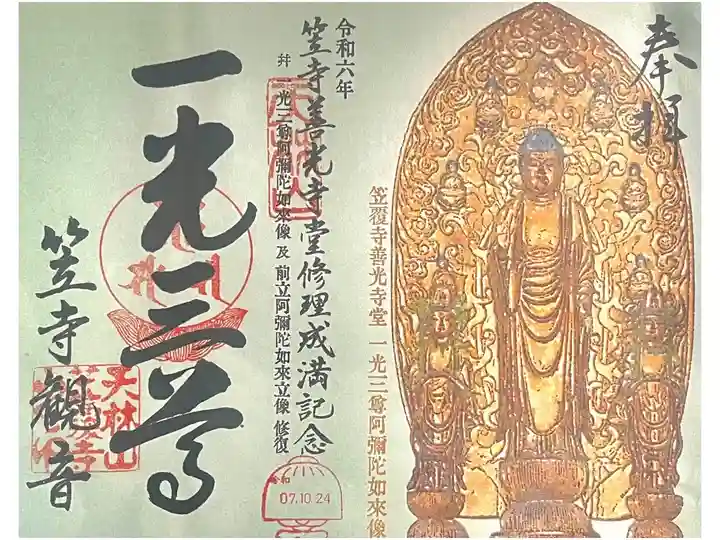 奉拝
笠覆寺善光寺堂 一光三尊阿彌陀如来像
令和六年
笠寺善光寺堂修理成満記念
并 一光三尊阿彌陀如来像 及 前立阿彌陀如来立像 修復
令和
07.10.24
一光三尊
笠寺観音
天林山